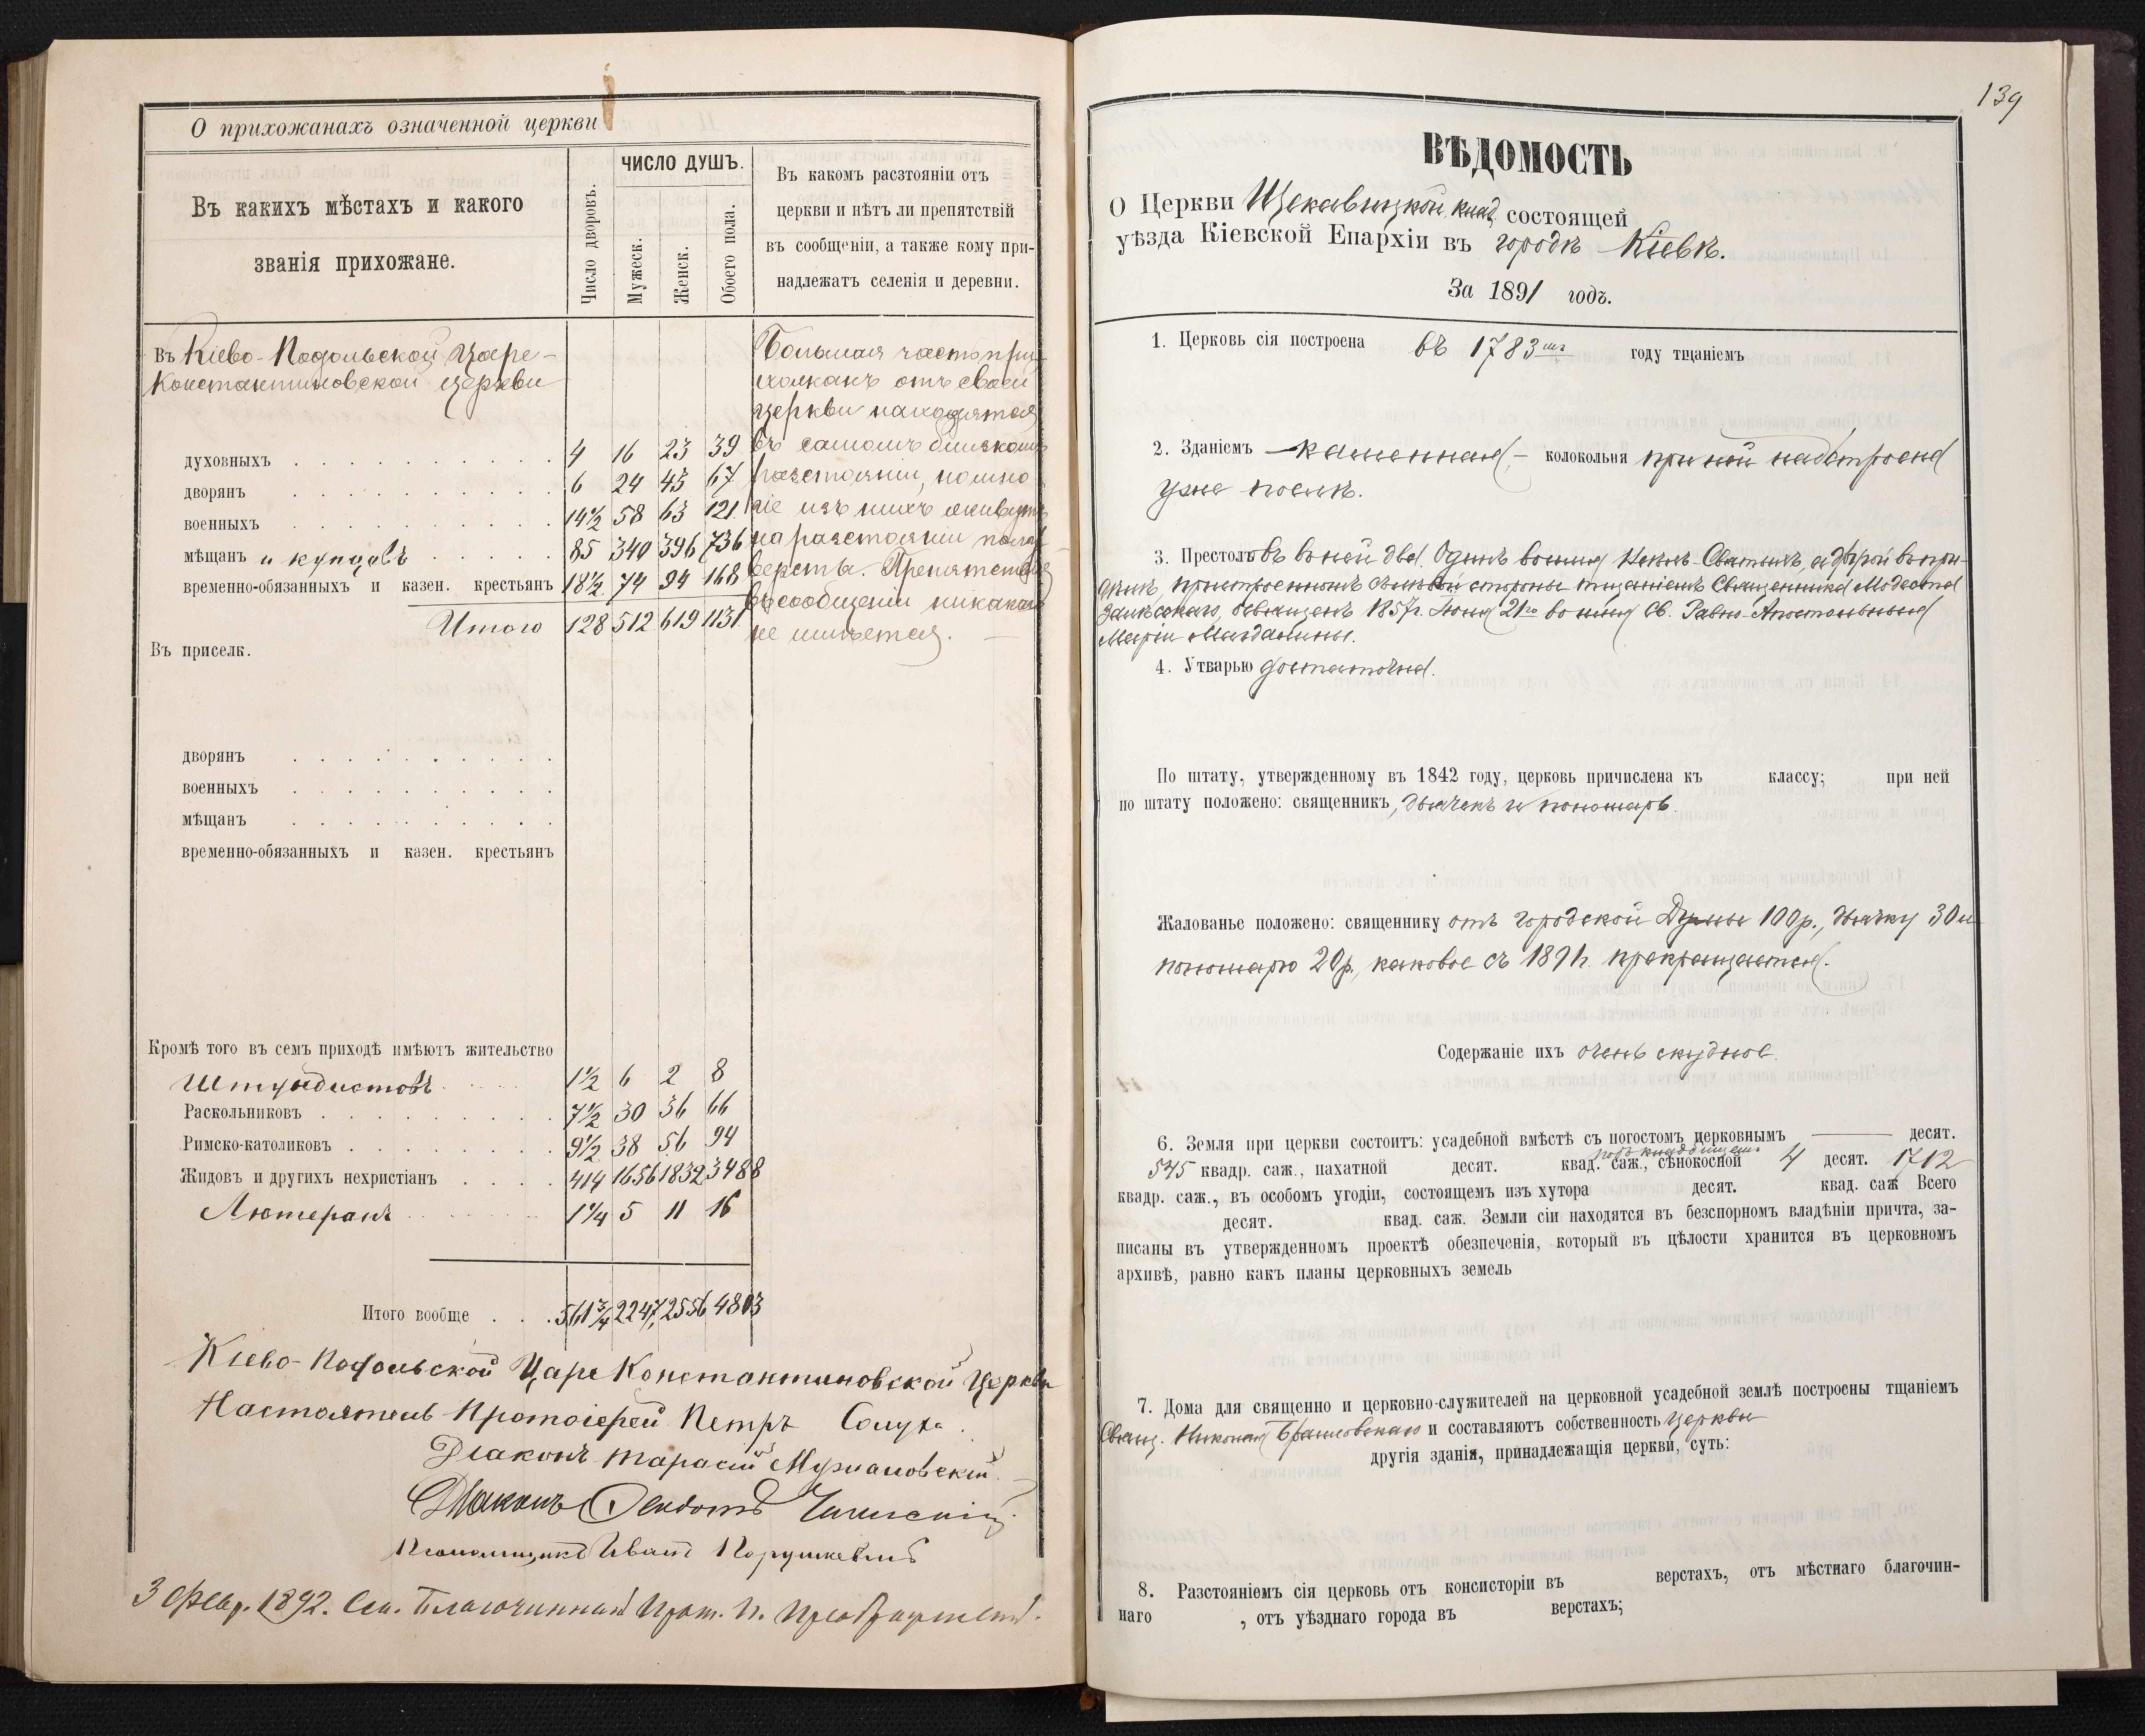 О прихожанахъ означенной церкви
Въ какихъ мѣстахъ и какого
званія прихожане.
Число дворовъ.
ЧИСЛО ДУШЪ.
Мужеск.
Женск.
Обоего пола.
Въ какомъ разстояніи отъ
церкви и нѣтъ ли препятствій
въ сообщеніи, а также кому при-
надлежатъ селенія и деревни.
Въ Кіево-Подольской Царе-
Константиновской церкви
духовныхъ . . . . . . . . . . 4 16 23 39
дворянъ . . . . . . . . . . 6 24 43 67
военныхъ . . . . . . . . . . 14½ 58 63 121
мѣщанъ и купцовъ . . . . . 85 340 396 736
временно-обязанныхъ и казен. крестьянъ 18½ 74 94 168
Итого 128 512 619 1131
Большая часть при-
хожанъ отъ своей
церкви находятся
въ самомъ близкомъ
разстояніи, но мно
гіе изъ нихъ живутъ
на разстояніи
версты. Препятствія
въ сообщеніи никакого
не имѣется.
Въ приселк.
дворянъ . . . . . . . . . .
военныхъ . . . . . . . . . .
мѣщанъ . . . . . . . . . .
временно-обязанныхъ и казен. крестьянъ
Кромѣ того въ семъ приходѣ имѣютъ жительство
Штундистовъ 1½ 6 2 8
Раскольниковъ . . . . . . . . . 7½ 30 36 66
Римско-католиковъ . . . . . . . . 9½ 38 56 94
Жидовъ и другихъ нехристіанъ . . . . 414 1656 1832 3488
Лютеранъ 1¼ 5 11 16
Итого вообще . . . 561¾ 2247 2556 4803
Кіево-Подольской Царе Константиновской Церкви
Настоятель Протоіерей Петръ
Діаконъ Тарасій
Діаконъ
Псаломщикъ Иванъ
3 Февр. 1892. Благочинный Прот. П.
139
ВѢДОМОСТЬ
О Церкви Щекавицкой клад. состоящей
уѣзда Кіевской Епархіи въ городѣ Кіевѣ.
За 1891 годъ.
1. Церковь сія построена въ 1783мъ году тщаніемъ
2. Зданіемъ каменная, – колокольня при ней надстроена
уже послѣ.
3. Престоловъ въ ней два. Одинъ во имя Всѣхъ Святыхъ, а другой въ при-
дѣлѣ, пристроенномъ съ лѣвой стороны тщаніемъ Священника Модеста
освященъ 1857г. Іюня 21го во имя Св. Равно-Апостольныя
Маріи Магдалины.
4. Утварью достаточна.
По штату, утвержденному въ 1842 году, церковь причислена къ классу; при ней
по штату положено: священникъ, дьячекъ и пономарь.
Жалованье положено: священнику отъ городской Думы 100р., дьячку 30 и
пономарю 20р., каковое съ 1891г. прекращается.
Содержаніе ихъ очень скудное.
6. Земля при церкви состоитъ: усадебной вмѣстѣ съ погостомъ церковнымъ — десят.
подъ кладбищемъ
545 квадр. саж., пахатной десят. квад. саж., сѣнокосной 4 десят. 1712
квадр. саж., въ особомъ угодіи, состоящемъ изъ хутора десят. квад. саж Всего
десят. квад. саж. Земли сіи находятся въ безспорномъ владѣніи причта, за-
писаны въ утвержденномъ проектѣ обезпеченія, который въ цѣлости хранится въ церковномъ
архивѣ, равно какъ планы церковныхъ земель
7. Дома для священно и церковно-служителей на церковной усадебной землѣ построены тщаніемъ
Свящ. Николая и составляютъ собственность церкви
другія зданія, принадлежащія церкви, суть:
8. Разстояніемъ сія церковь отъ консисторіи въ верстахъ, отъ мѣстнаго благочин-
наго , отъ уѣзднаго города въ верстахъ;